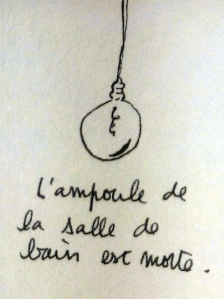 L'ampoule de
la salle de
bain est morte.